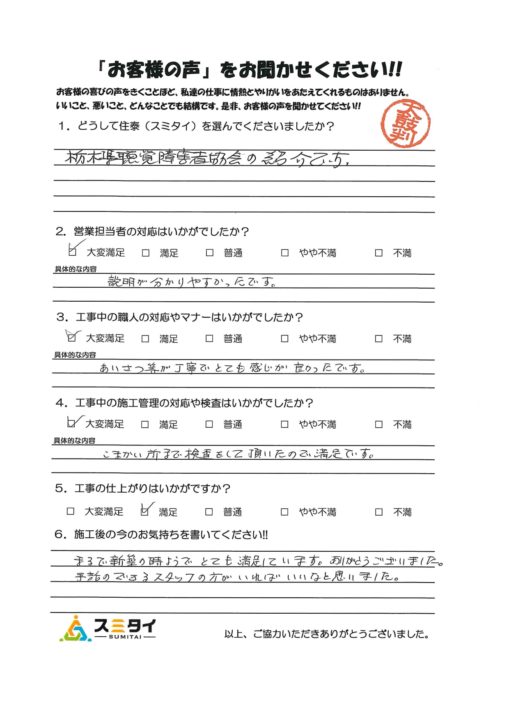 「お客様の声」をお聞かせください!!
お客様の喜びの声をきくことほど、私達の仕事に情熱とやりがいをあたえてくれるものはありません。
いいこと、悪いこと、どんなことでも結構です。是非、お客様の声を聞かせてください!!
太鼓判
1．どうして住泰（スミタイ）を選んでくださいましたか？
栃木県聴覚障害者協会の紹介です。
2．営業担当者の対応はいかがでしたか？
☑ 大変満足 □ 満足 □ 普通 □ やや不満 □ 不満
具体的な内容
説明が分かりやすかったです。
3．工事中の職人の対応やマナーはいかがでしたか？
☑ 大変満足 □ 満足 □ 普通 □ やや不満 □ 不満
具体的な内容
あいさつ等が丁寧でとても感じが良かったです。
4．工事中の施工管理の対応や検査はいかがでしたか？
☑ 大変満足 □ 満足 □ 普通 □ やや不満 □ 不満
具体的な内容
こまかい所まで検査をして頂いたので満足です。
5．工事の仕上がりはいかがですか？
□ 大変満足 ☑ 満足 □ 普通 □ やや不満 □ 不満
6．施工後の今のお気持ちを書いてください!!
まるで新築の時ようで とても満足しています。ありがとうございました。
手話のできるスタッフの方がいればいいなと思いました。
スミタイ
SUMITAI
以上、ご協力いただきありがとうございました。